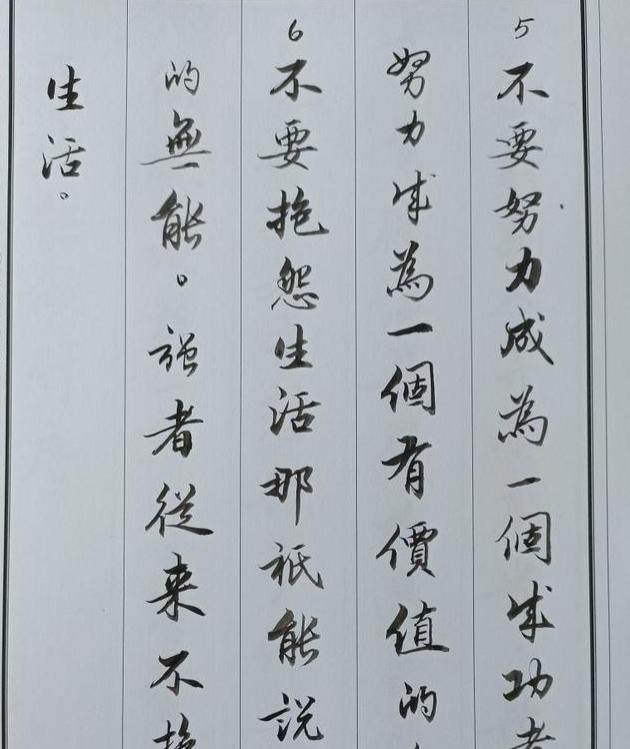 5不要努力成為一個成功者
努力成為一個有價值的
6不要抱怨生活那祇能説
的無能。強者從来不抱
生活。